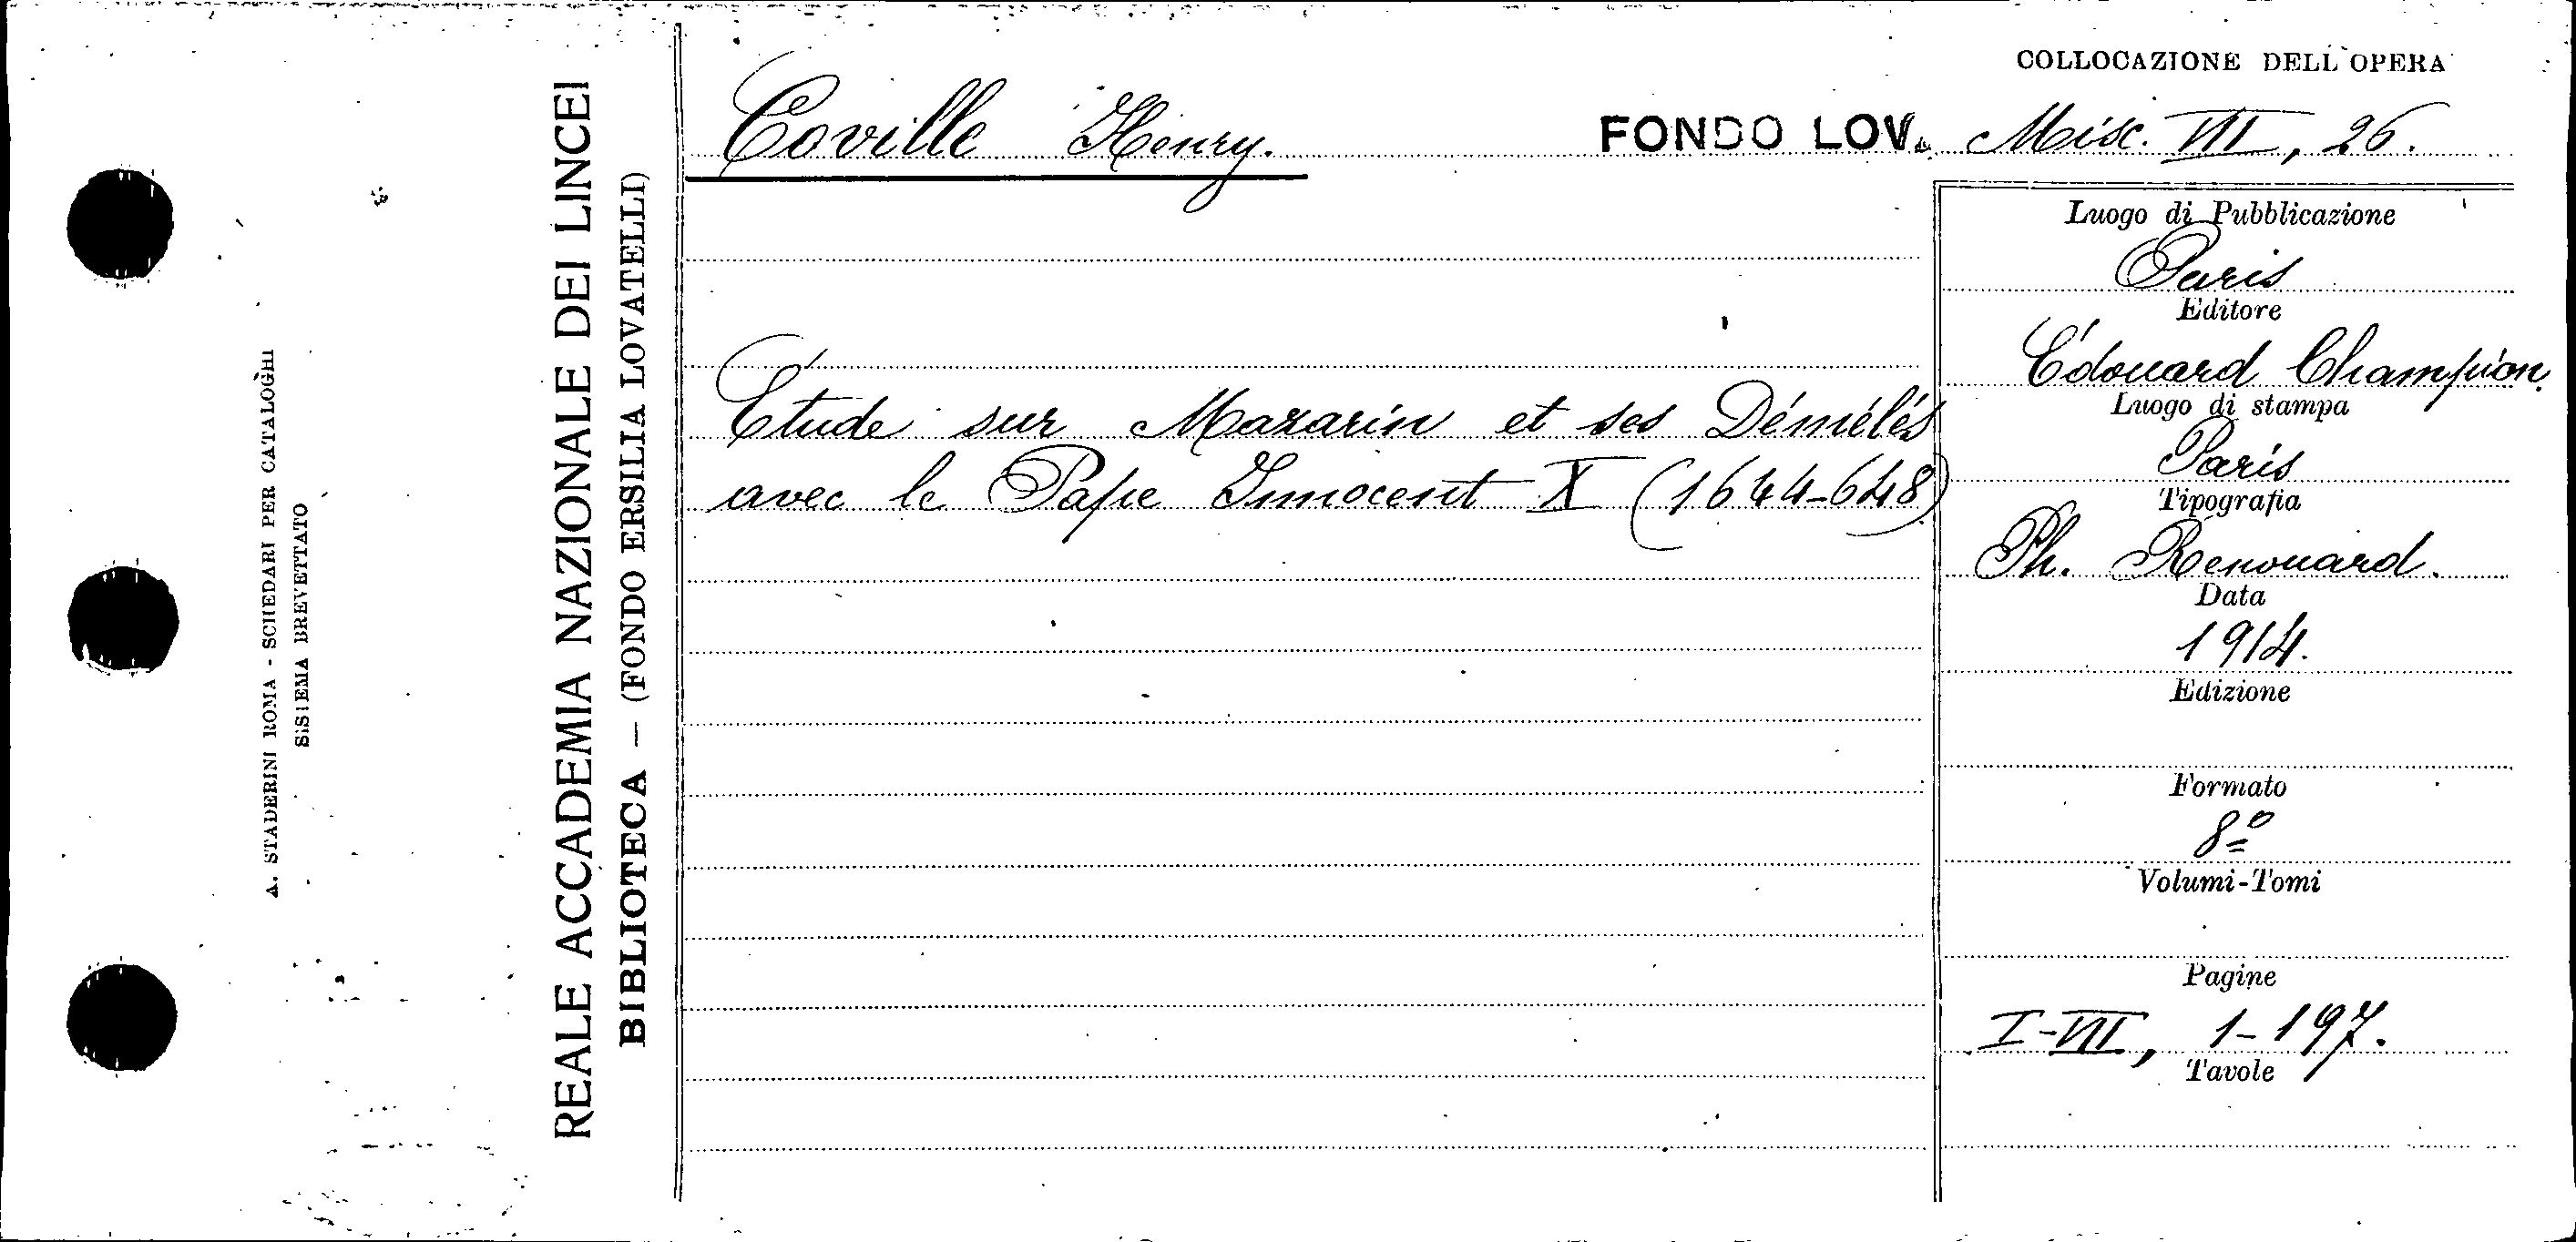 A. STADERINI ROMA - SCHEDARI PER CATALOGHI
SISTEMA BREVETTATO
REALE ACCADEMIA NAZIONALE DEI LINCEI
BIBLIOTECA — (FONDO ERSILIA LOVATELLI)
COLLOCAZIONE DELL'OPERA
Coville Henry. FONDO LOV. Misc. VII, 26.
Étude sur Mazarin et ses Démélés
avec le Pape Innocent X (1644-648)
Luogo di Pubblicazione
Paris
Editore
Édouard Champion.
Luogo di stampa
Paris
Tipografia
Ph. Renouard.
Data
1914.
Edizione
Formato
8º
Volumi-Tomi
Pagine
I-VII, 1-197.
Tavole